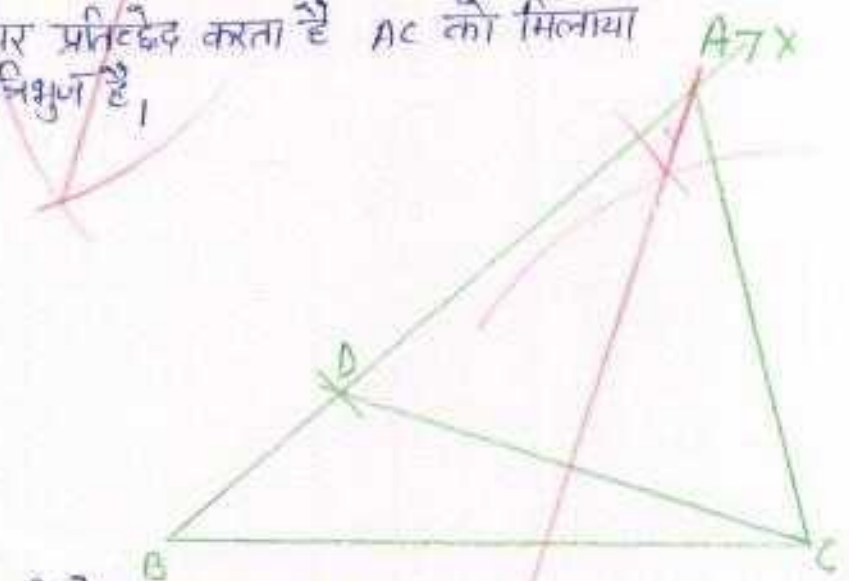 पर प्रतिच्छेद करता है AC को मिलाया
त्रिभुज है।
A X
D
B
C